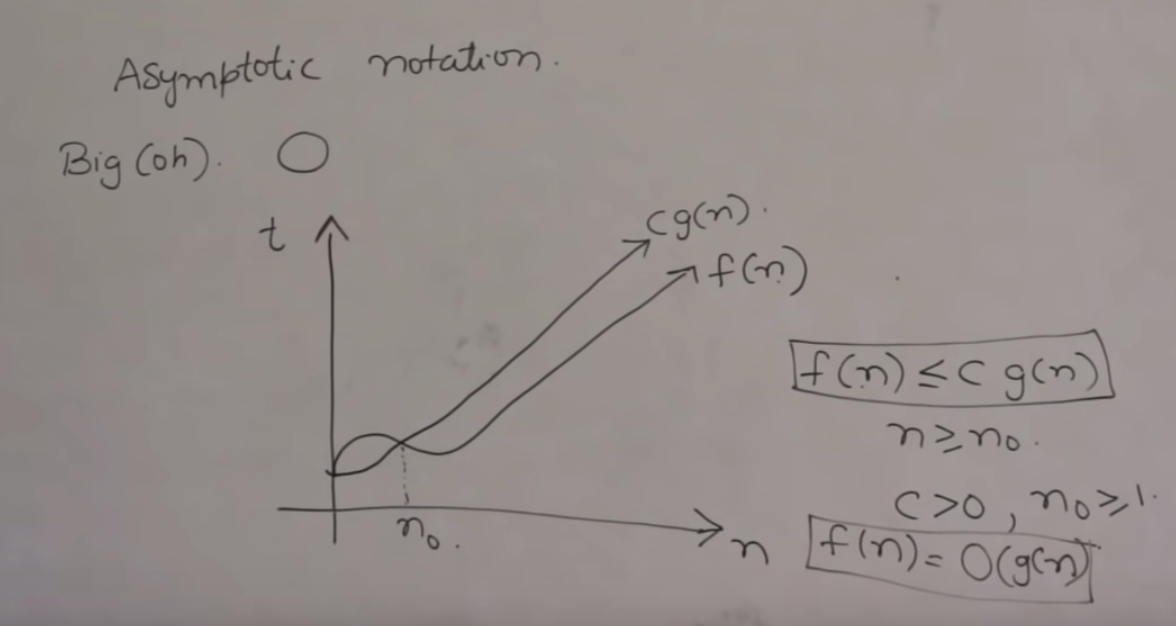 Asymptotic notation.
Big (oh). O
t
c g(n).
f(n)
f(n) ≤ c g(n)
n ≥ n₀.
c > 0, n₀ ≥ 1.
n₀.
n
f(n) = O(g(n)